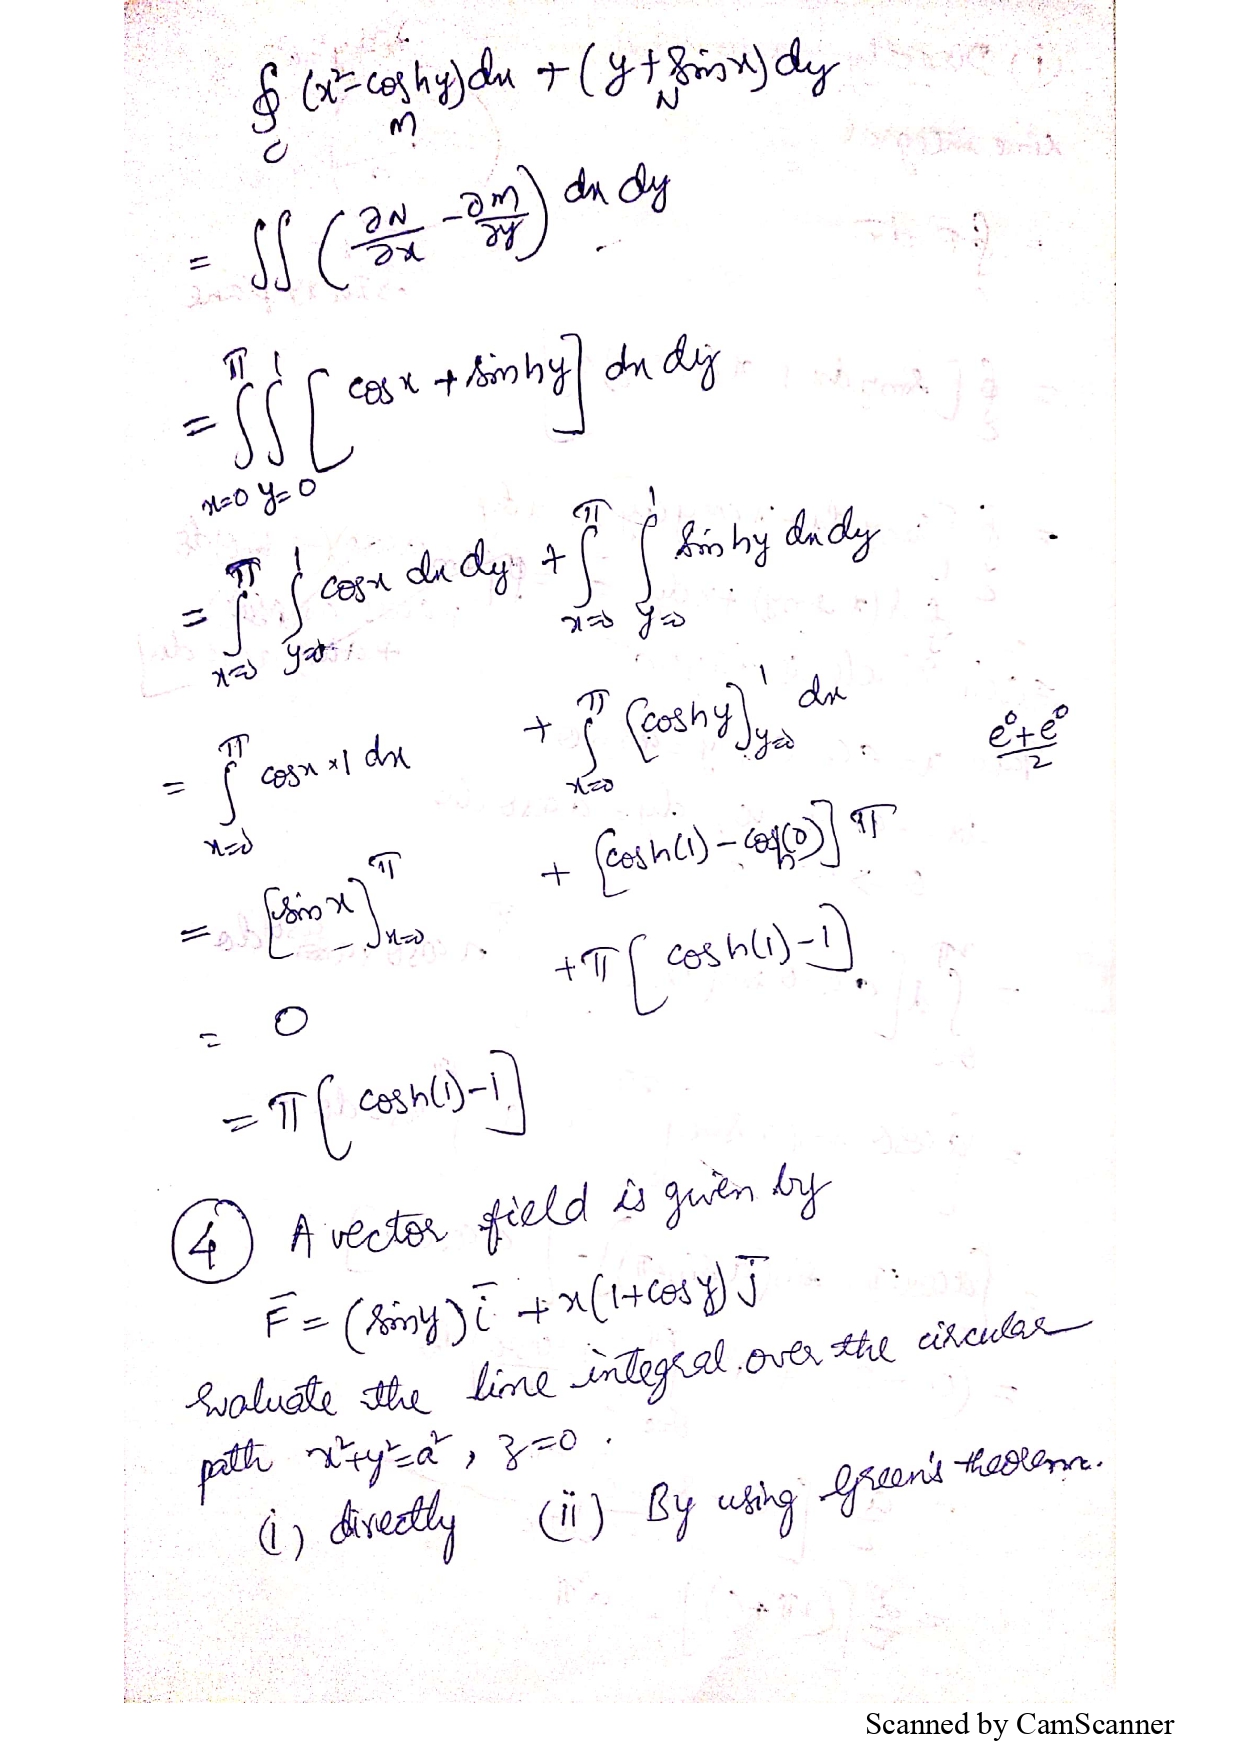 ∮_C (x²-coshy)dx + (y+sinx)dy
M N
= ∬ (∂N/∂x - ∂M/∂y) dx dy
= ∫_{x=0}^{π} ∫_{y=0}^{1} [cosx + sinhy] dx dy
= ∫_{x=0}^{π} ∫_{y=0}^{1} cosx dx dy + ∫_{x=0}^{π} ∫_{y=0}^{1} sinhy dx dy
= ∫_{x=0}^{π} cosx×1 dx + ∫_{x=0}^{π} [coshy]_{y=0}^{1} dx
(e⁰+e⁰)/2
= [sinx]_{x=0}^{π} + [cosh(1) - cosh(0)] π
= 0 + π[cosh(1)-1].
= π[cosh(1)-1]
④ A vector field is given by
F̄ = (siny) ī + x(1+cosy) j̄
Evaluate the line integral over the circular
path x²+y²=a², z=0.
(i) directly (ii) By using Green's theorem.
Scanned by CamScanner